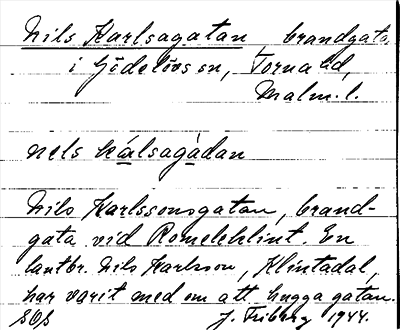 Nils Karlsagatan, brandgata,
i Gödelövs sn, Torna hd,
Malm. l.
nels ká̱lsagàdan
Nils Karlssonsgatan, brand-
gata vid Romeleklint. En
lantbr. Nils Karlsson, Klintadal,
har varit med om att hugga gatan.
J. Friberg 1944.